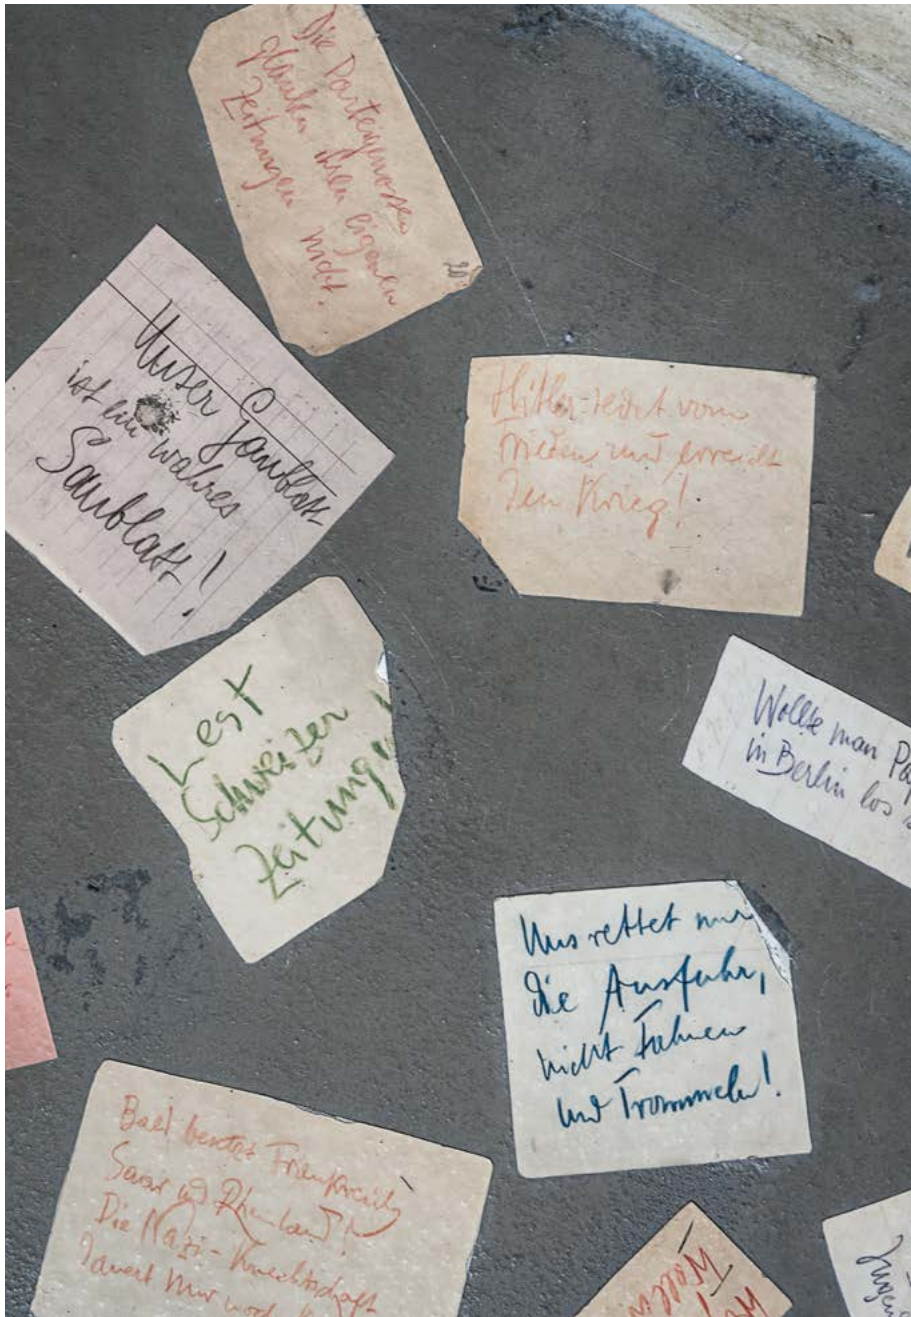 Die Parteigenossen
glauben ihren eigenen
Zeitungen nicht.
20
Unser Gaublatt
ist ein wahres
Saublatt!
Hitler redet vom
Frieden und erreicht
den Krieg!
Lest
Schweizer
Zeitung
Wollte man
in Berlin los
Uns rettet nur
die Ausfuhr,
nicht Fahnen
und Trommeln!
Bald besetzt Frankreich
Saar und Rheinland!
Die Nazi-Knechtschaft
dauert nur noch